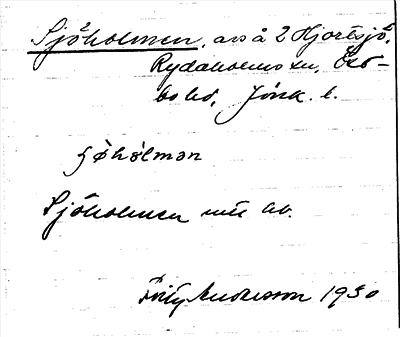 Sjöholmen, avs å 2 Hjortsjö,
Rydaholms sn, Öst-
bo hd, Jönk. l.
ʃøhòlmən
Sjöholmen enl. hb.
Fritz Andersson 1930